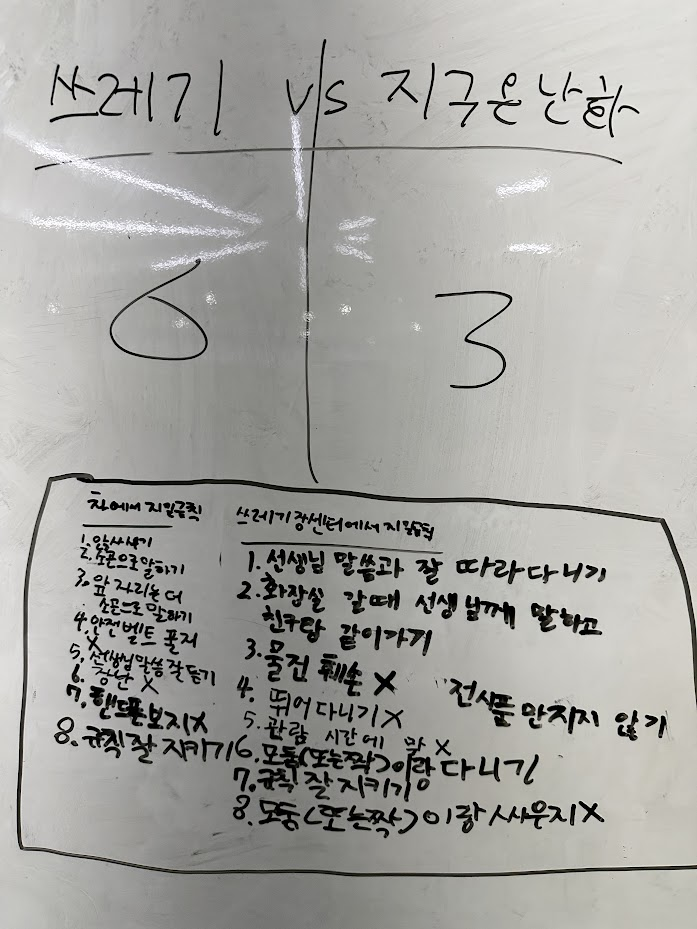 쓰레기 vs 지구온난화
6 3
차에서 지킬규칙
1. 안싸우기
2. 소곤으로말하기
3. 앞 자리는 더
소곤으로 말하기
4. 안전벨트 풀지
X
5. 선생님말씀 잘 듣기
6. 장난 X
7. 핸드폰보지X
8. 규칙 잘 지키기
쓰레기장센터에서 지킬규칙
1. 선생님 말씀과 잘 따라다니기
2. 화장실 갈때 선생님께 말하고
친구랑 같이가기
3. 물건 훼손 X
전시품 만지지 않기
4. 뛰어다니기X
5. 관람 시간에 말 X
6. 모둠(또는짝)이랑 다니기
7. 규칙 잘 지키기
8. 모둠(또는짝)이랑 싸운지X